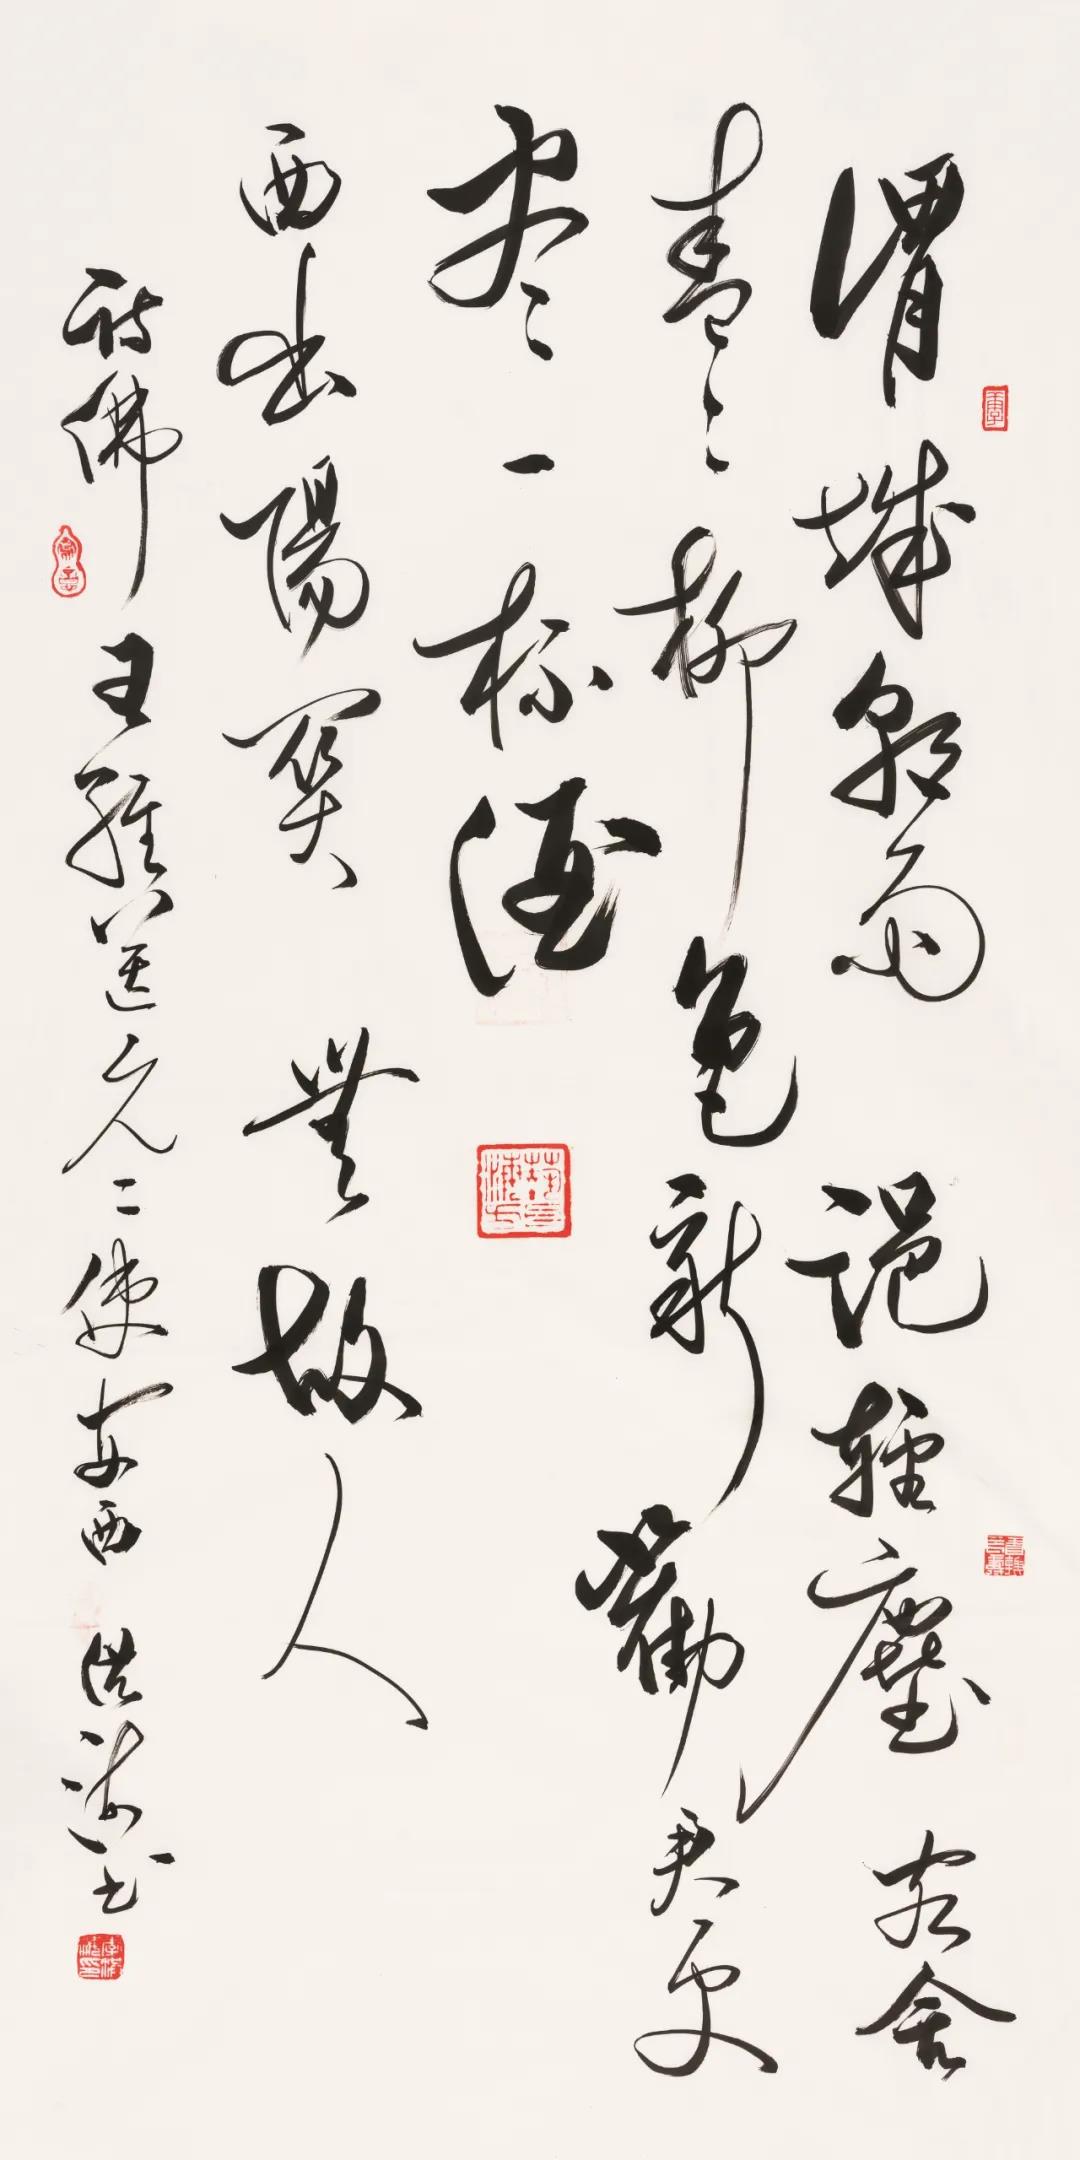 渭城朝雨浥輕塵客舍
青青柳色新勸君更
盡一杯酒
西出陽關無故人
詩佛王維送元二使安西洪海书